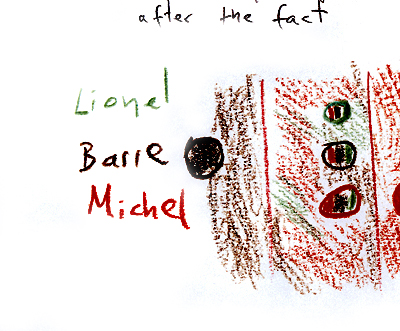 after the fact
Lionel
Barre
Michel